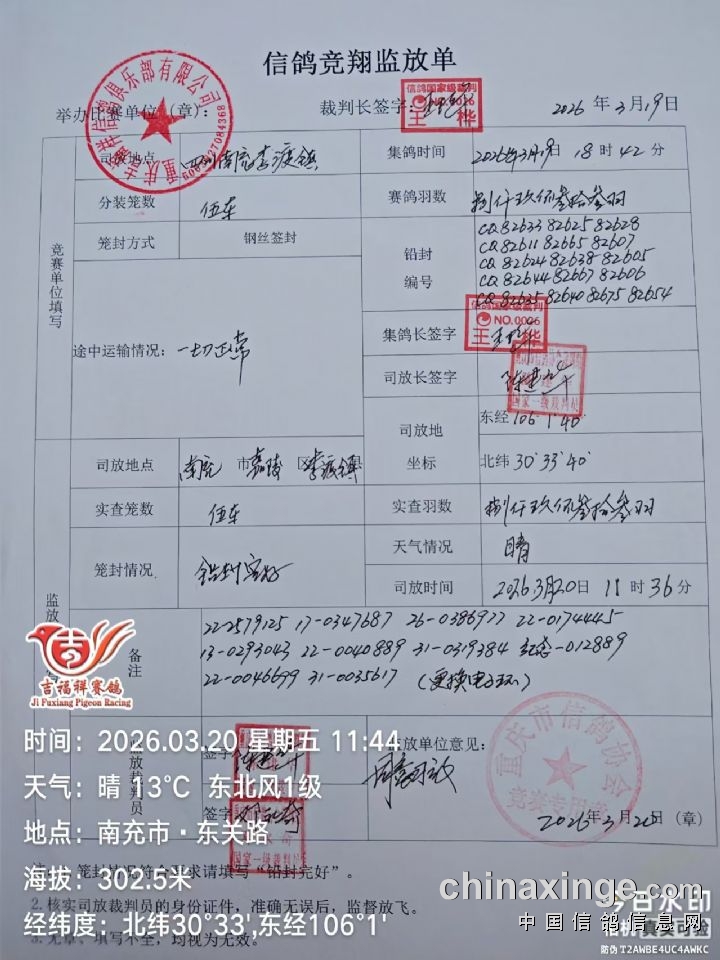 信鸽竞翔监放单
举办比赛单位(章): 裁判长签字: 2026 年 3 月 19 日
信鸽国家级裁判
NO.0006
王 桦
重庆吉 祥信鸽俱乐部有限公司
司放地点 四川南充李渡镇 集鸽时间 2026年3月19日 18 时 42 分
分装笼数 伍车 赛鸽羽数 捌仟玖佰叁拾叁羽
笼封方式 钢丝签封 铅封编号
CQ 82633 82625 82628
CQ 82611 82665 82607
CQ 82624 82638 82605
CQ 82644 82667 82606
CQ 82635 82640 82675 82654
竞赛单位填写
途中运输情况: 一切正常
集鸽长签字
NO.0006
王 桦
司放长签字
国家一级裁判
司放地坐标 东经 106°1′40″
北纬 30°33′40″
司放地点 南充 市 嘉陵 区 李渡镇
实查笼数 伍车 实查羽数 捌仟玖佰叁拾叁羽
笼封情况 铅封完好 天气情况 晴
司放时间 2026.3月20日 11 时 36 分
监放
备注
22-2579125 17-0347687 26-0386977 22-0174445
13-0293043 22-0040889 31-0319384 -012889
22-0046699 31-0035617 (更换电子环)
吉福祥赛鸽
Ji Fuxiang Pigeon Racing
放裁判员 签字 放单位意见:
同意司放
签字
国家一级裁判
重庆市信鸽协会
竞赛专用章
2026年3月20日 (章)
时间: 2026.03.20 星期五 11:44
天气: 晴 13℃ 东北风1级
地点: 南充市·东关路
海拔: 302.5米
经纬度: 北纬30°33′,东经106°1′
笼封情况符合要求请填写“铅封完好”。
2. 核实司放裁判员的身份证件,准确无误后,监督放飞。
3. 无章、填写不全,均视为无效。
chinaxinge.com
中国信鸽信息网
今日水印
相机 真实可验
防伪 T2AWBE4UC4AWKC